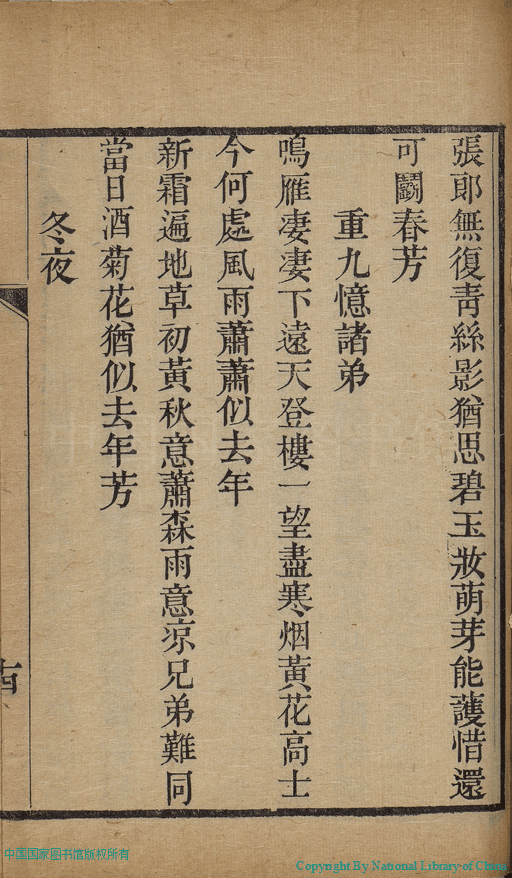 張郎無復青絲影猶思碧玉妝萌芽能護惜還
可鬭春芳
重九憶諸弟
鳴雁凄凄下遠天登樓一望盡寒烟黃花高士
今何處風雨蕭蕭似去年
新霜遍地草初黃秋意蕭森雨意凉兄弟難同
當日酒菊花猶似去年芳
冬夜
中国国家图书馆版权所有
Copyright By National Library of China